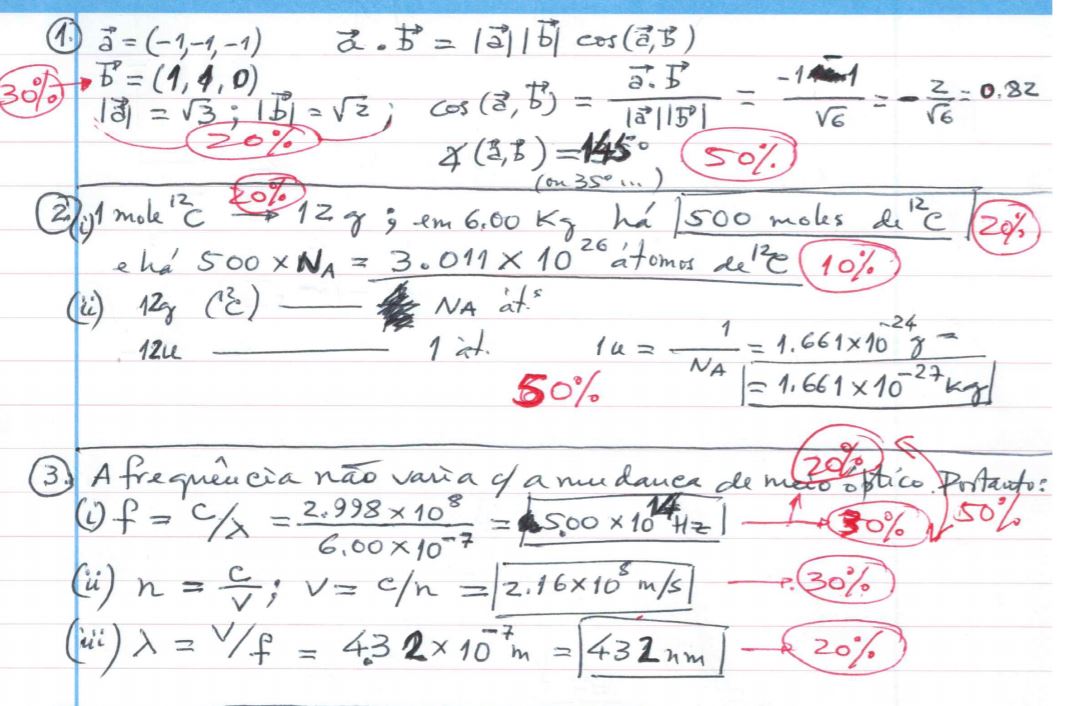 1. a⃗ = (-1,-1,-1) a⃗ . b⃗ = |a⃗| |b⃗| cos(a⃗,b⃗)
30% → b⃗ = (1, 1, 0)
|a⃗| = √3 ; |b⃗| = √2 ; cos (a⃗, b⃗) = a⃗. b⃗ / |a⃗||b⃗| = -1-1 / √6 = - 2/√6 = 0.82
20%
∡ (a⃗,b⃗) = 145° 50%
(ou 35° ...)
2. i) 1 mole ¹²C → 12 g ; em 6.00 Kg há 500 moles de ¹²C 20%
20%
e há 500 × NA = 3.011 × 10²⁶ átomos de ¹²C 10%
(ii) 12g (¹²C) —— NA át.s
12u —— 1 át. 1u = 1/NA = 1.661×10⁻²⁴ g =
50% = 1.661 × 10⁻²⁷ kg
20%
3. A frequência não varia c/ a mudanca de meio óptico. Portanto:
(i) f = c/λ = 2.998 × 10⁸ / 6.00 × 10⁻⁷ = 5.00 × 10¹⁴ Hz → 30% 50%
(ii) n = c/v ; v = c/n = 2.16×10⁸ m/s → 30%
(iii) λ = v/f = 4.32 × 10⁻⁷ m = 432 nm → 20%